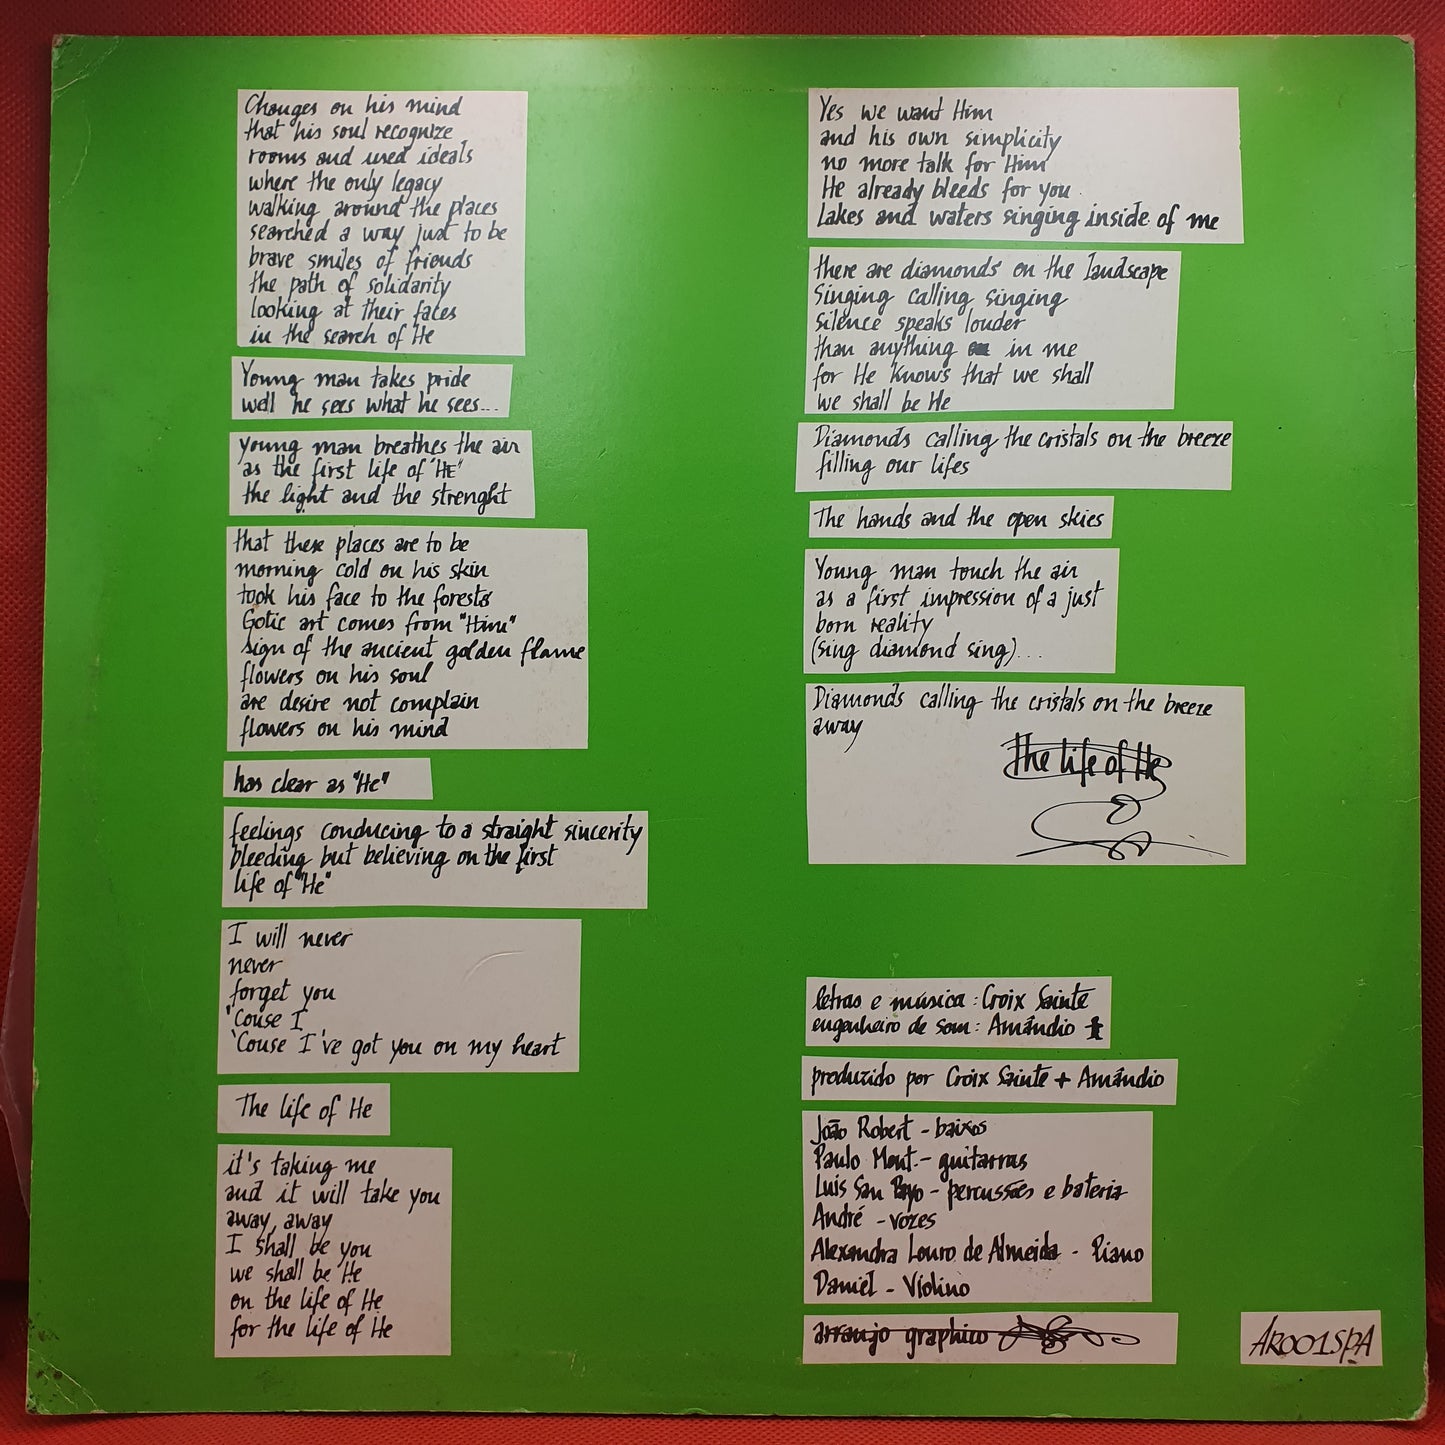 Changes on his mind
that his soul recognize
rooms and used ideals
where the only legacy
walking around the places
searched a way just to be
brave smiles of friends
the path of solidarity
looking at their faces
in the search of He
Young man takes pride
well he sees what he sees...
young man breathes the air
as the first life of "HE"
the light and the strenght
that these places are to be
morning cold on his skin
took his face to the forests
Gotic art comes from "Him"
sign of the ancient golden flame
flowers on his soul
are desire not complain
flowers on his mind
has clear as "He"
feelings conducing to a straight sincerity
bleeding but believing on the first
life of "He"
I will never
never
forget you
'Couse I
'Couse I've got you on my heart
The life of He
it's taking me
and it will take you
away, away
I shall be you
we shall be He
on the life of He
for the life of He
Yes we want Him
and his own simplicity
no more talk for Him
He already bleeds for you
Lakes and waters singing inside of me
there are diamonds on the landscape
Singing calling singing
silence speaks louder
than anything in me
for He knows that we shall
we shall be He
Diamonds calling the cristals on the breeze
filling our lifes
The hands and the open skies
Young man touch the air
as a first impression of a just
born reality
(sing diamond sing)...
Diamonds calling the cristals on the breeze
away
The life of He
letras e música: Croix Sainte
engenheiro de som: Amândio
produzido por Croix Sainte + Amândio
João Robert - baixos
Paulo Mont. - guitarras
Luis San Payo - percussões e bateria
André - vozes
Alexandra Louro de Almeida - Piano
Daniel - Violino
arraujo graphico
AR001SPA